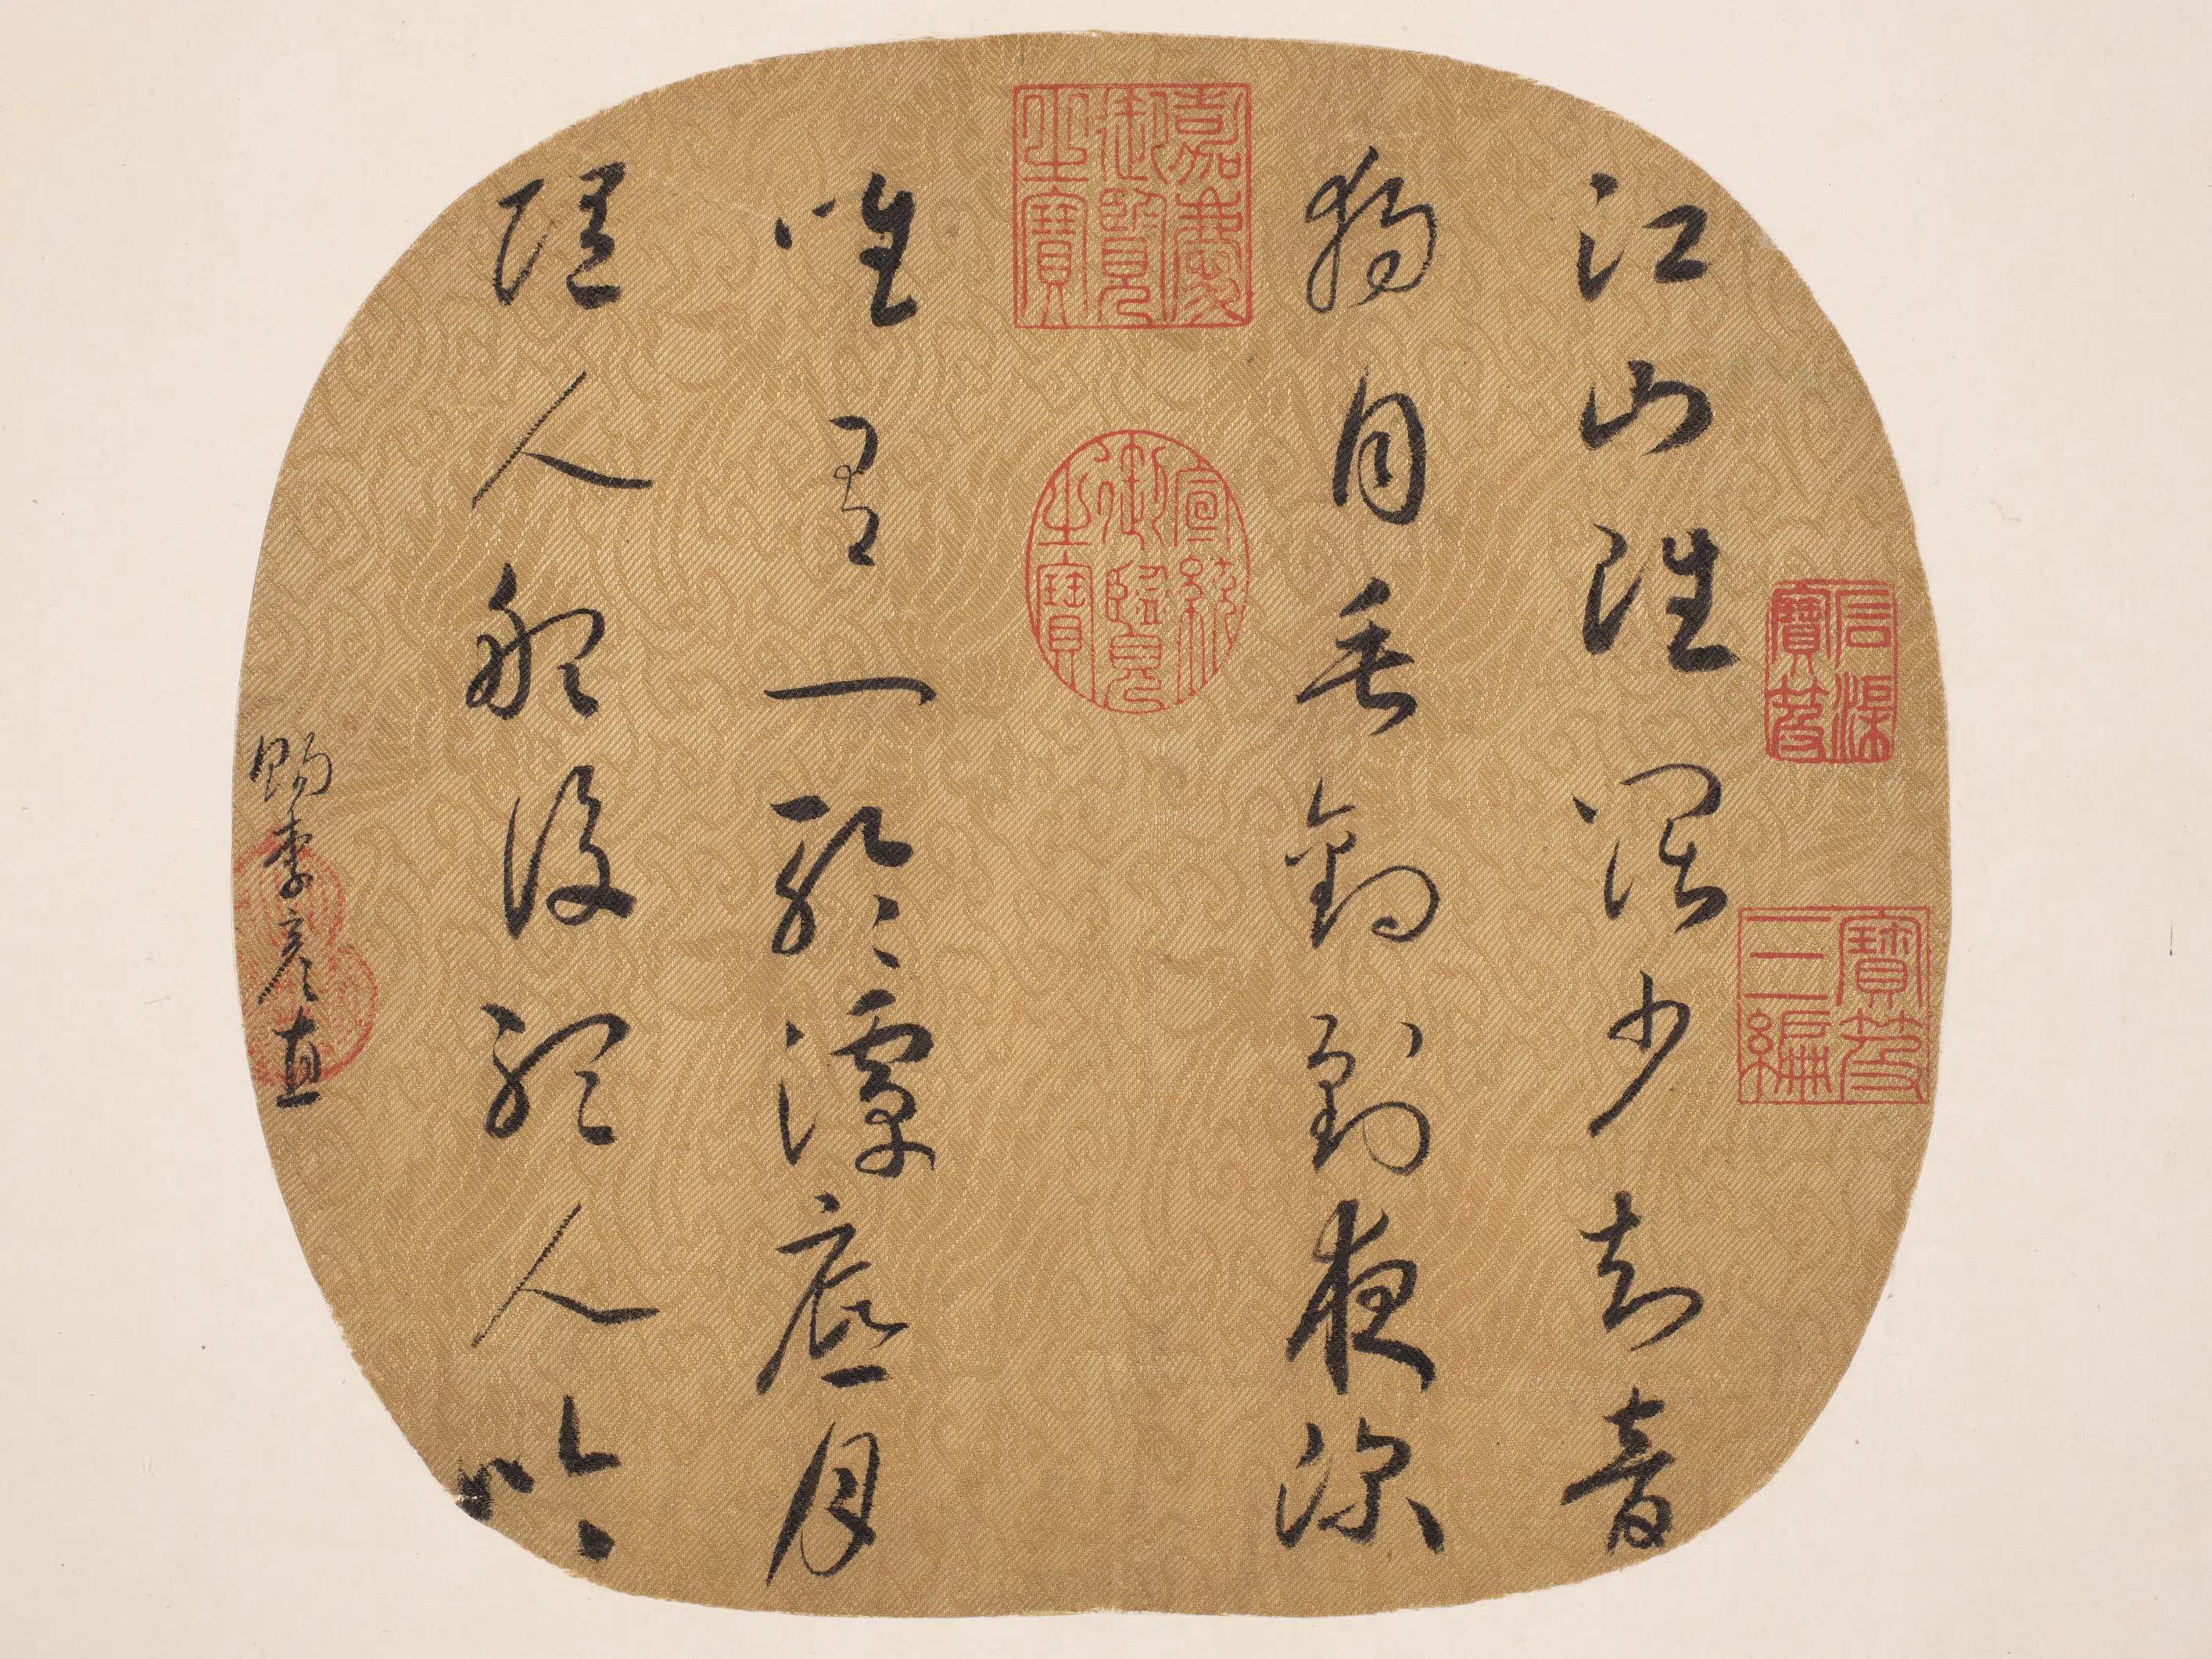 石渠寶笈
寶笈三編
江山雖闊少知音
獨自垂鉤到夜深
嘉慶御覽之寶
宣統御覽之寶
唯有一輪潭底月
隨人船後聽人吟
賜李彥直